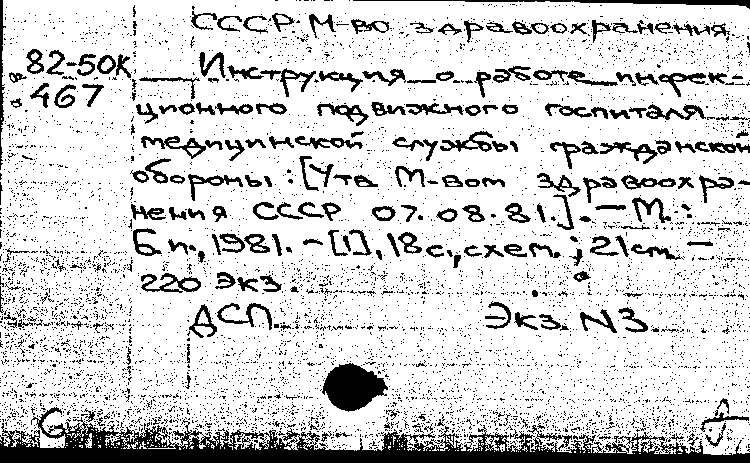 СССР. М-во здравоохранения
82-50К
467
Инструкция о работе инфек-
ционного подвижного госпиталя
медицинской службы гражданской
обороны : [Утв М-вом здравоохра-
нения СССР 07.08.81.]. — М. :
Б.и., 1981. - [1], 18 с., схем. ; 21 см —
220 экз.
ДСП.
Экз. N3.